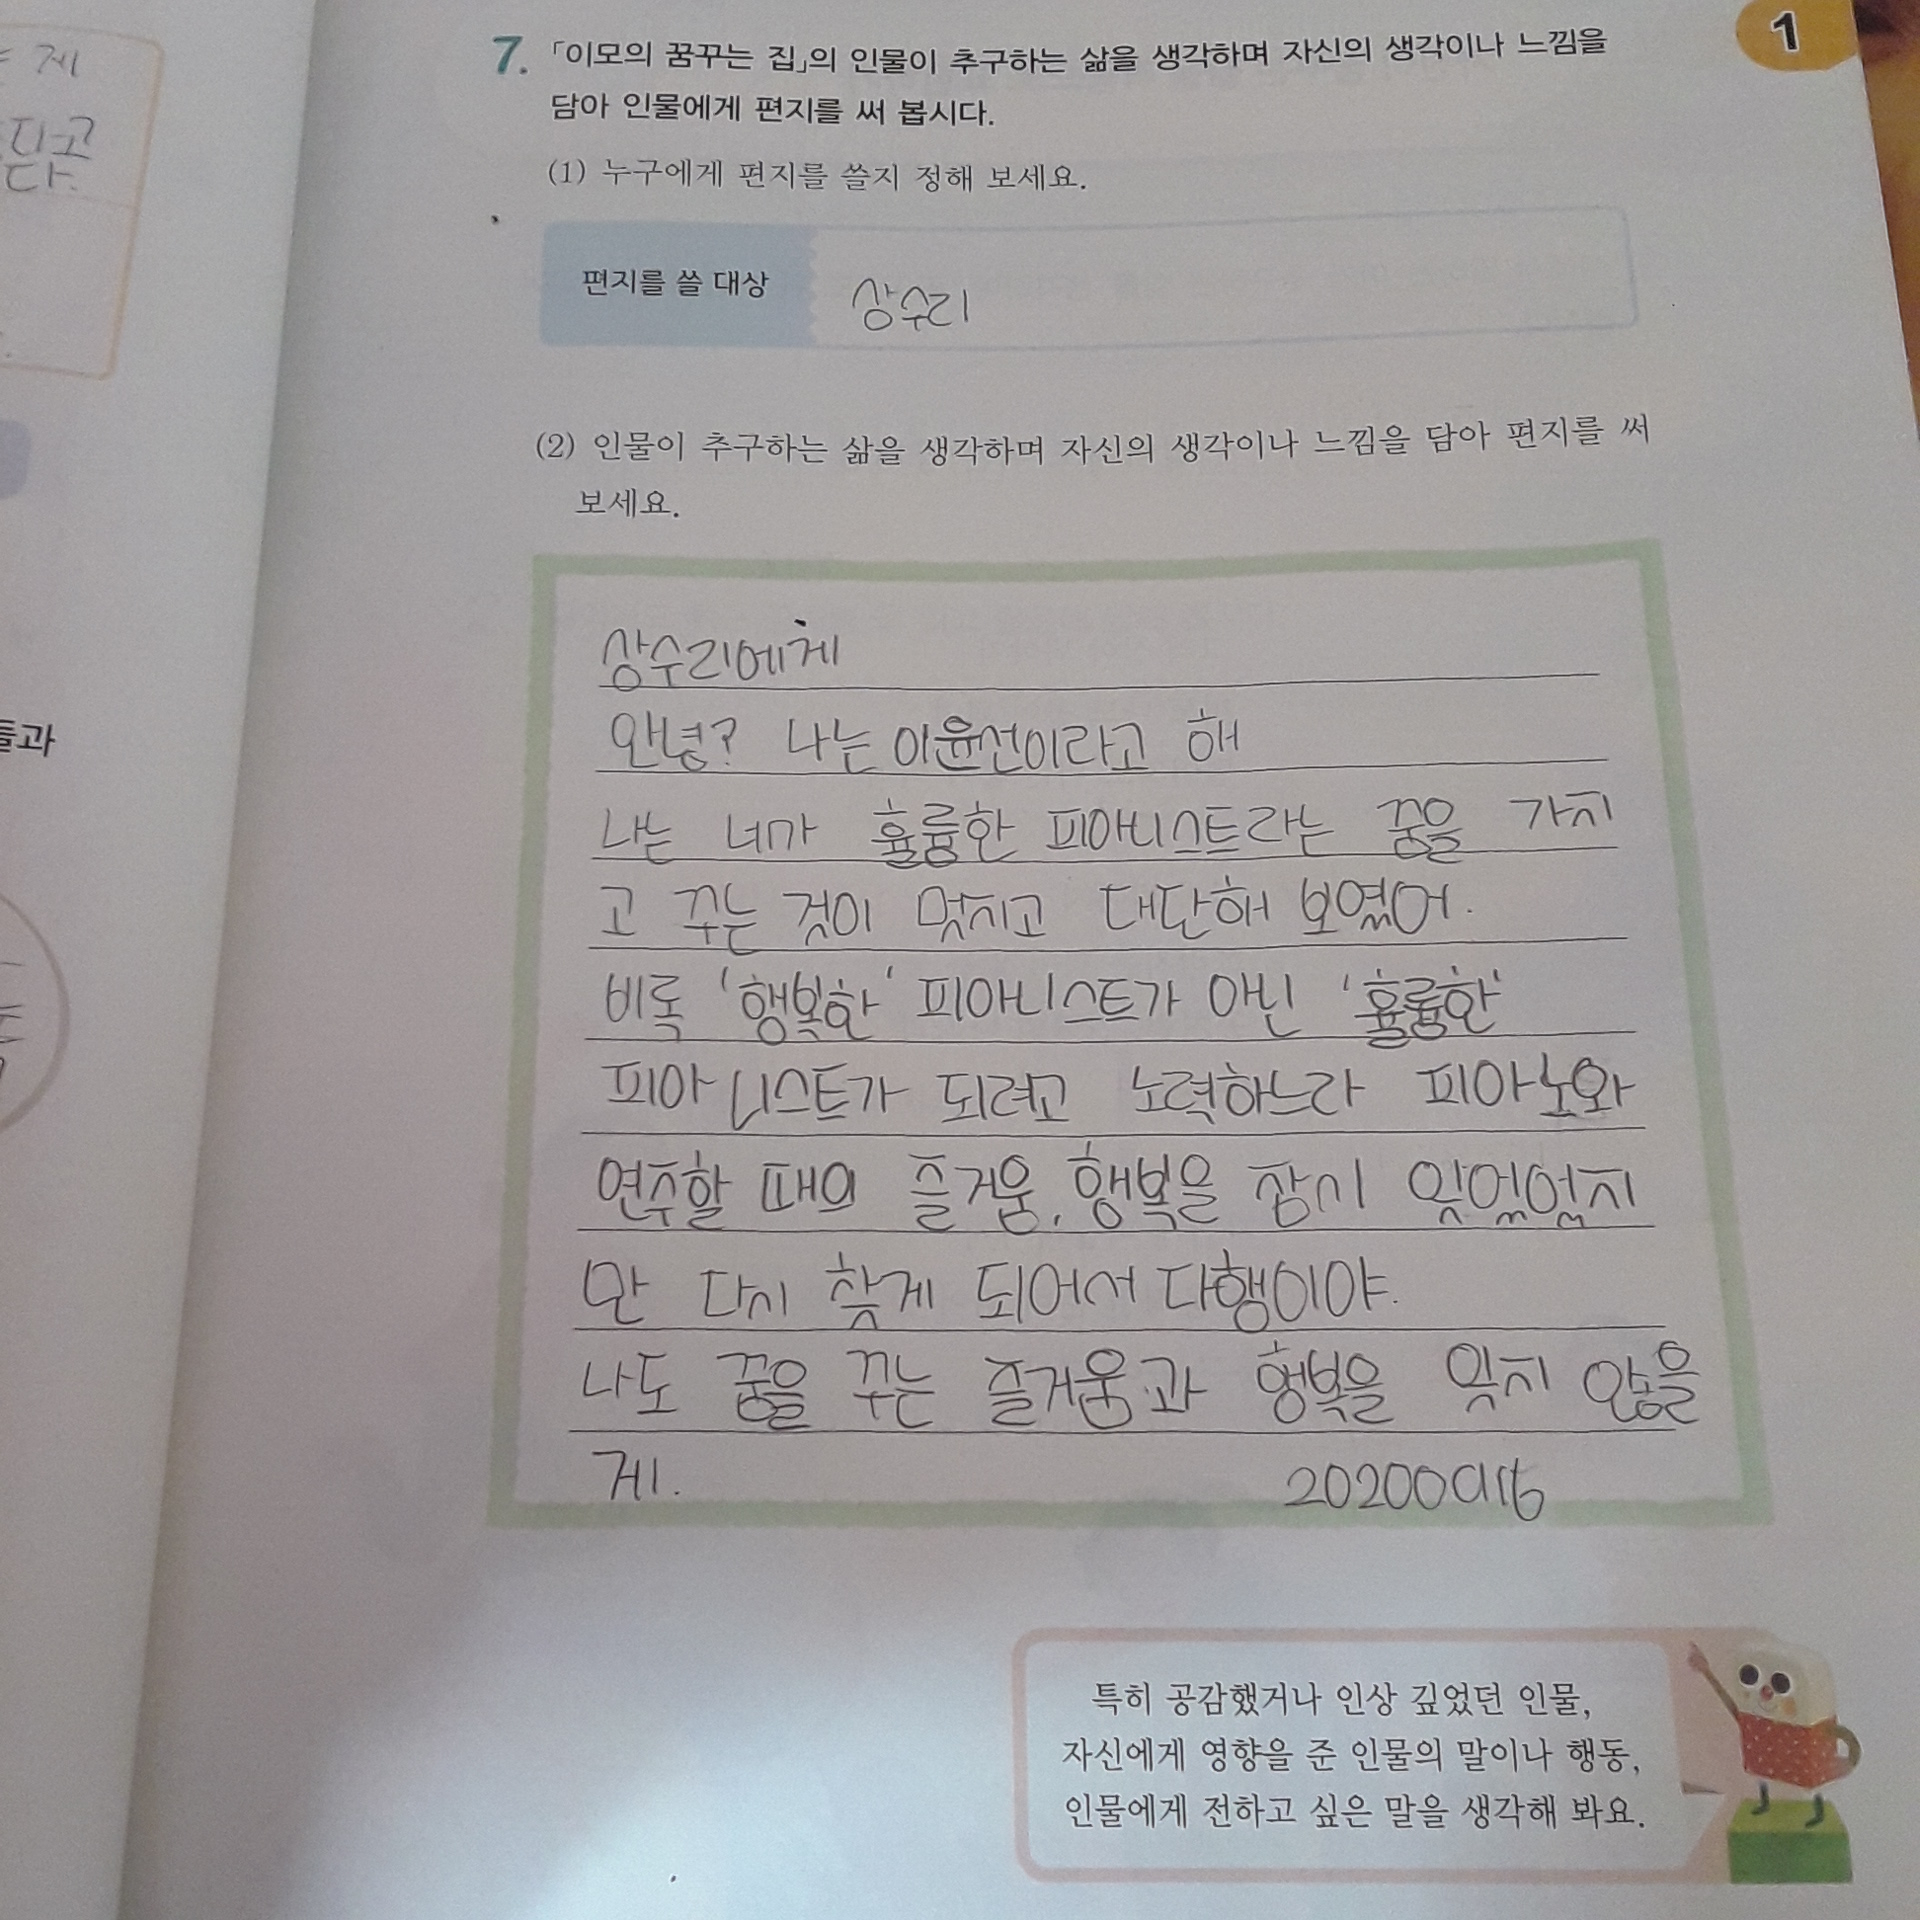 제
답고
다.
들과
1
7. 「이모의 꿈꾸는 집」의 인물이 추구하는 삶을 생각하며 자신의 생각이나 느낌을
담아 인물에게 편지를 써 봅시다.
(1) 누구에게 편지를 쓸지 정해 보세요.
편지를 쓸 대상 상수리
(2) 인물이 추구하는 삶을 생각하며 자신의 생각이나 느낌을 담아 편지를 써
보세요.
상수리에게
안녕? 나는 이윤선이라고 해
나는 네가 훌륭한 피아니스트라는 꿈을 가지
고 꾸는 것이 멋지고 대단해 보였어.
비록 '행복한' 피아니스트가 아닌 '훌륭한'
피아니스트가 되려고 노력하느라 피아노와
연주할 때의 즐거움, 행복을 잠시 잊었었지
만 다시 찾게 되어서 다행이야.
나도 꿈을 꾸는 즐거움과 행복을 잊지 않을
게. 20200916
특히 공감했거나 인상 깊었던 인물,
자신에게 영향을 준 인물의 말이나 행동,
인물에게 전하고 싶은 말을 생각해 봐요.